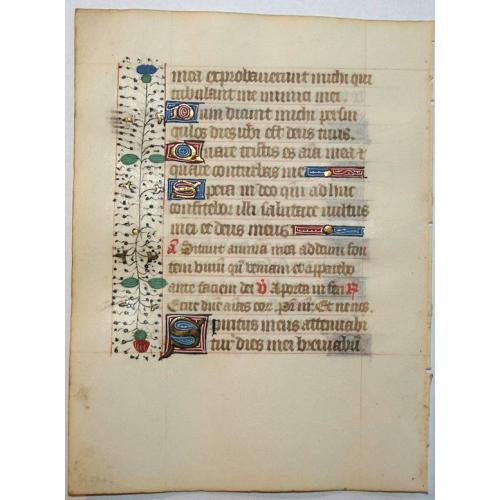 mea exprobauerunt michi qui
tribulant me inimici mei.
Dum dicunt michi per sin
gulos dies ubi est deus tuus.
Quare tristis es aīa mea et
quare conturbas me
Spera in deo qm̄ ad huc
confitebor illi salutare vultus
mei et deus meus
a Sitiuit anima mea ad deum fon
tem viuū qn̄ veniam et apparebo
ante faciem dei V A porta in feri R
Erue dn̄e aīas eor. Pr̄ nr̄. Et ne nos.
Spiritus meus attenuabi
tur dies mei breuiabū